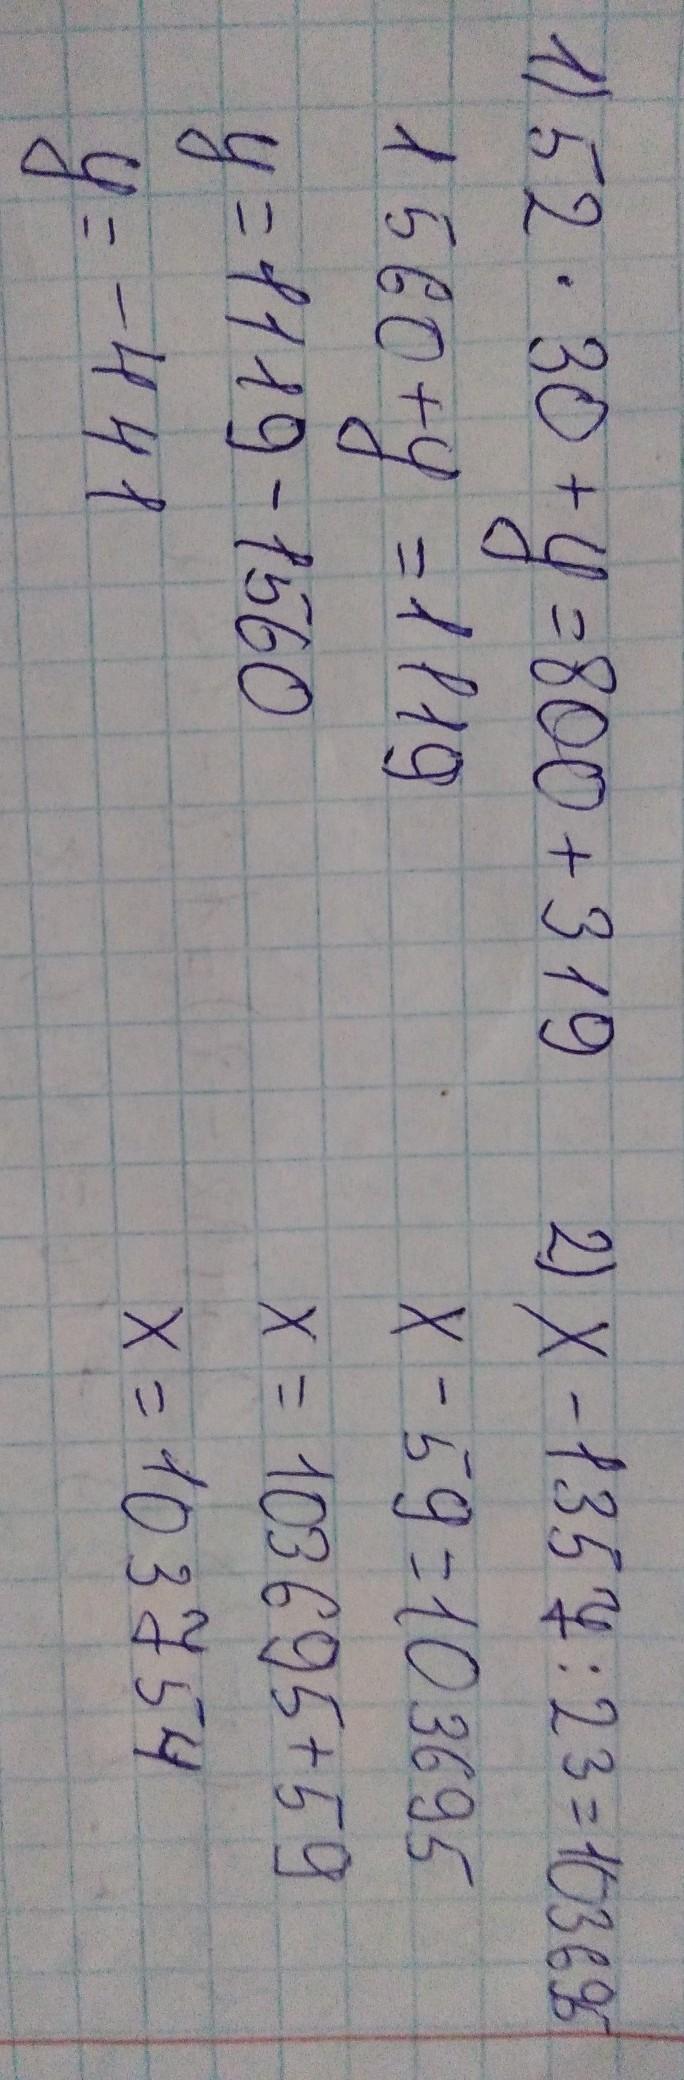 1) 52 · 30 + y = 800 + 319
1560 + y = 1119
y = 1119 - 1560
y = -441
2) x - 1357 : 23 = 103695
x - 59 = 103695
x = 103695 + 59
x = 103754